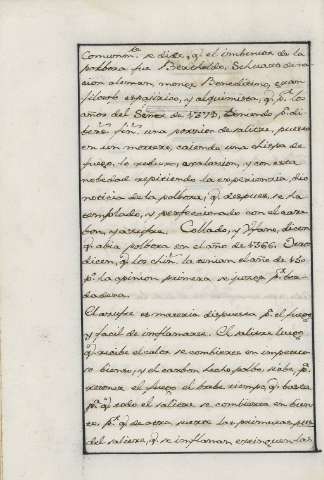 Comunmte. se dize, qe. el imbentor de la
polbora fue Bertholdo, Schuarts de na
cion aleman, monge Benedictino, gran
filosofo espagirico, y alquimista, qe. pr. los
años del Señor de 1373, teniendo pa. di
berso fin, una porcion de salitre, puesto
en un mortero, caiendo una chispa de
fuego, lo reduxo, a y con esta
nobedad repitiendo la experiencia dio
noticia de la polbora, qe. despues, se ha
templado, y perfeccionado con el car
bon, y azufre. Collado, y Ufano, dicen
qe. abia polbora en el año de 1366. Otros
dicen, qe. los chin. la tenian el año de 160
pr. la opinion primera se juzga pr. ber
dadera.
El azufre es materia dispuesta pa. el fuego
y facil de inflamarse. El salitre luego
qe. recibe el calor se combierte en impetuo
so biento, y el carbon hecho polbo sirbe, pa.
retener el fuego el brebe tiempo, qe. basta
pa. qe. todo el salitre se combierta en bien
to, pr. qe. de otra suerte las primeras par
del salitre, qe. se inflaman extinguen las